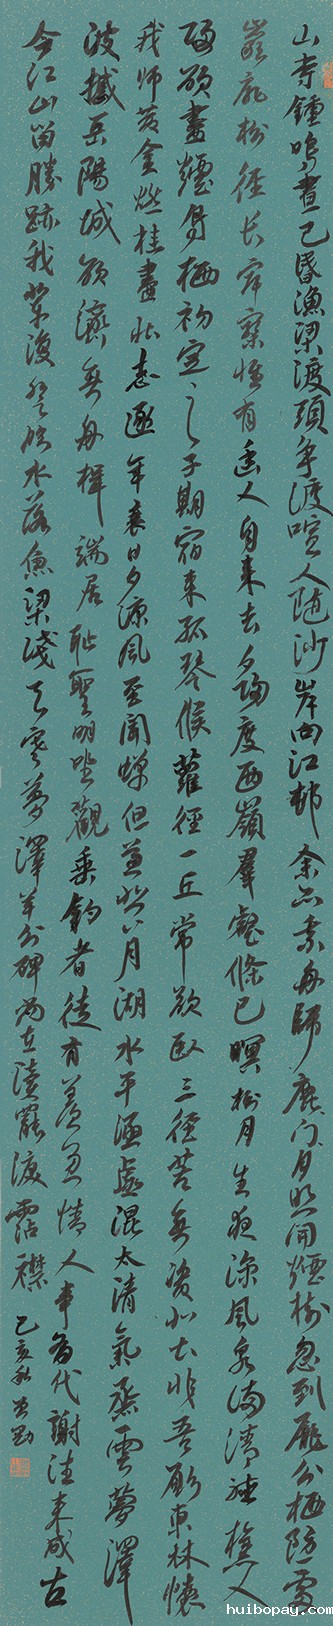 山寺鐘鳴晝已昏漁梁渡頭爭渡喧人隨沙岸向江邨余亦乘舟歸鹿门月照開煙樹忽到龐公栖隐處
巖扉松徑長寂寥惟有幽人自来去夕陽度西嶺羣壑倏已暝松月生夜涼風泉滿清聽樵人
歸欲盡煙鳥栖初定之子期宿来孤琴候蘿徑一丘常欲臥三徑苦無資北土非吾願東林懷
我師黃金燃桂盡壯志逐年衰日夕涼風至聞蟬但益悲八月湖水平涵虛混太清氣蒸雲夢澤
波撼岳陽城欲濟無舟楫端居恥聖明坐觀垂釣者徒有羨魚情人事有代謝往来成古
今江山留勝跡我輩復登臨水落魚梁淺天寒夢澤羊公碑尚在讀罷淚霑襟 己亥秋
huibopay.com